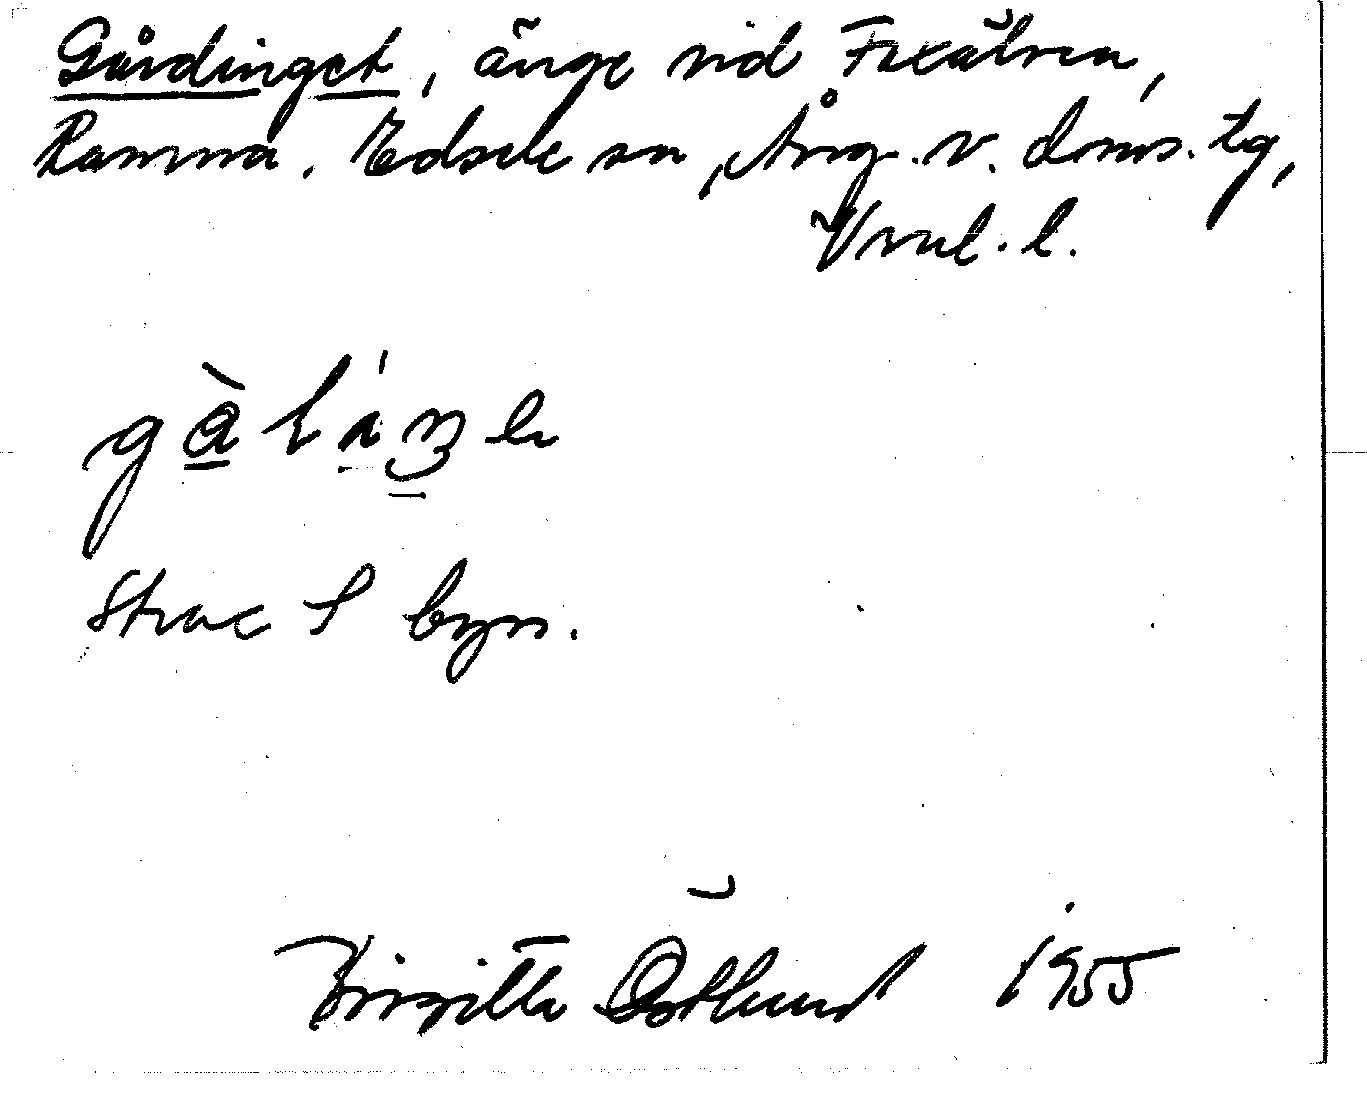 Gårdinget, änge vid Faxälven,
Ramna. Edsele sn, Ång. v. doms. tg,
Vnrl. l.
Strax S byn.
Birgitta Östlund 1955